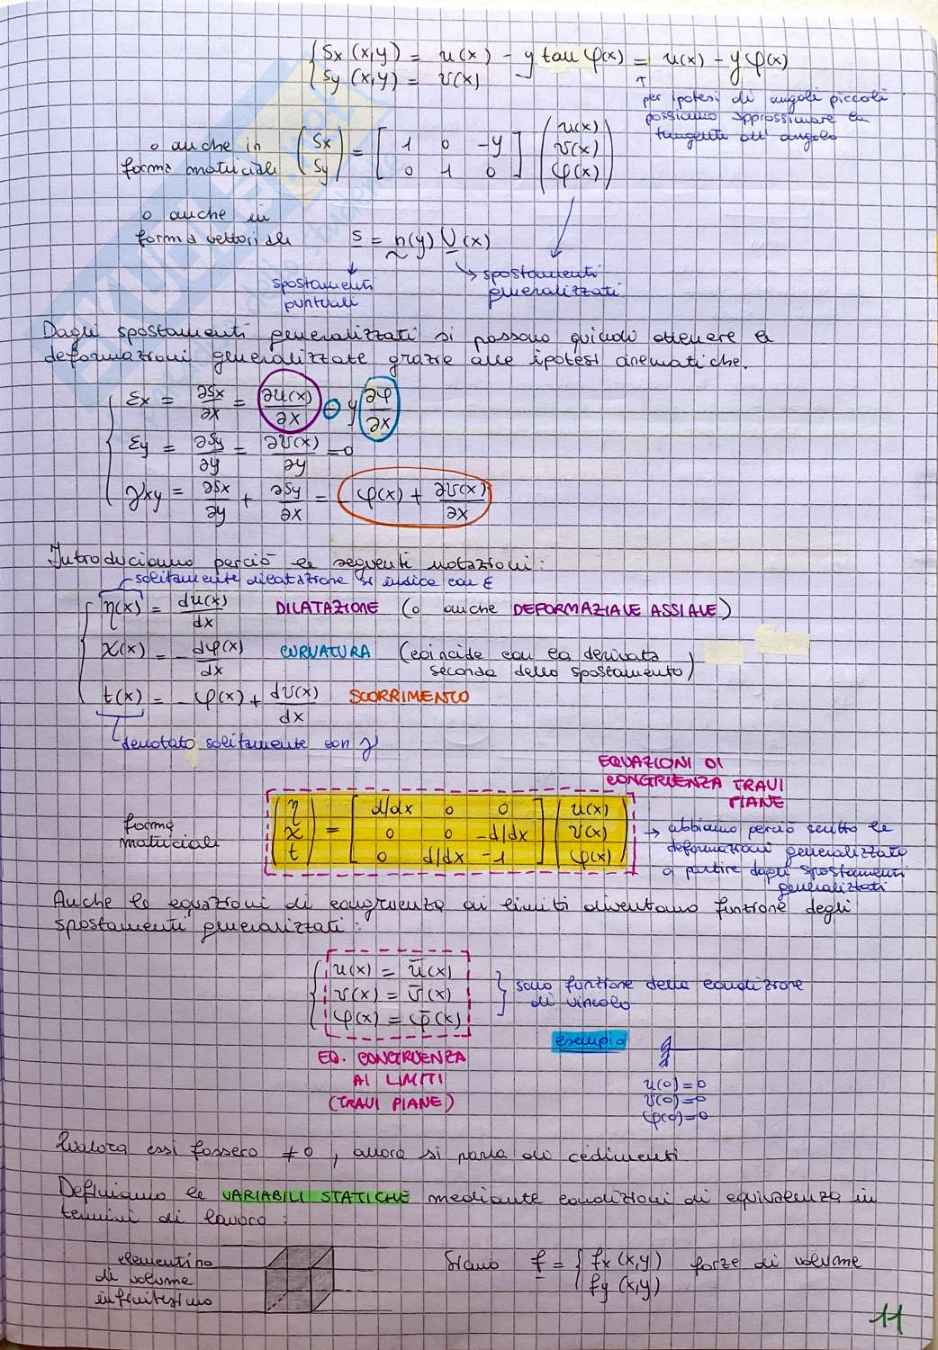 Sx (x,y) = u(x) - y tan φ(x) = u(x) - y φ(x)
Sy (x,y) = v(x)
per ipotesi di angoli piccoli
possiamo approssimare la
tangente all'angolo
o anche in
forma matriciale
(Sx Sy) = [1 0 -y; 0 1 0] (u(x) v(x) φ(x))
o anche in
forma vettoriale
s = n(y) U(x)
spostamenti
puntuali
spostamenti
generalizzati
Dagli spostamenti generalizzati si possono quindi ottenere le
deformazioni generalizzate grazie alle ipotesi cinematiche.
εx = ∂sx/∂x = ∂u(x)/∂x - y ∂φ/∂x
εy = ∂sy/∂y = ∂v(x)/∂y = 0
γxy = ∂sx/∂y + ∂sy/∂x = -φ(x) + ∂v(x)/∂x
Introduciamo perciò le seguenti notazioni:
solitamente dilatazione si indica con ε
η(x) = du(x)/dx DILATAZIONE (o anche DEFORMAZIALE ASSIALE)
χ(x) = -dφ(x)/dx CURVATURA (coincide con la derivata
seconda dello spostamento)
t(x) = -φ(x) + dv(x)/dx SCORRIMENTO
denotato solitamente con γ
EQUAZIONI DI
CONGRUENZA TRAVI
PIANE
forma
matriciale
(η χ t) = [d/dx 0 0; 0 0 -d/dx; 0 d/dx -1] (u(x) v(x) φ(x))
→ abbiamo perciò scritto le
deformazioni generalizzate
a partire dagli spostamenti
generalizzati
Anche le equazioni di congruenza ai limiti diventano funzione degli
spostamenti generalizzati:
u(x) = ū(x)
v(x) = v̄(x)
φ(x) = φ̄(x)
sono funzione delle condizione
di vincolo
EQ. CONGRUENZA
AI LIMITI
(TRAVI PIANE)
esempio
u(0)=0
v(0)=0
φ(0)=0
Qualora essi fossero ≠0, allora si parla di cedimenti
Definiamo le VARIABILI STATICHE mediante condizioni di equivalenza in
termini di lavoro:
elementino
di volume
infinitesimo
Siano f = { fx (x,y) forze di volume
fy (x,y)
11